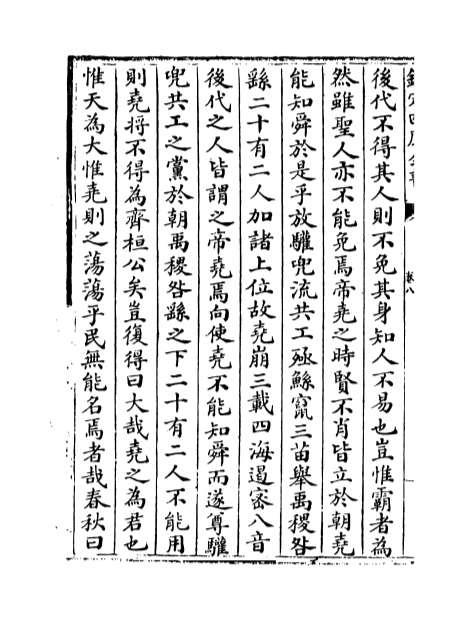 欽定四庫全書
卷八
後代不得其人則不免其身知人不易也豈惟霸者為
然雖聖人亦不能免焉帝堯之時賢不肖皆立於朝堯
能知舜於是乎放驩兜流共工殛鯀竄三苗舉禹稷咎
繇二十有二人加諸上位故堯崩三載四海遏密八音
後代之人皆謂之帝堯焉向使堯不能知舜而遂尊驩
兜共工之黨於朝禹稷咎繇之下二十有二人不能用
則堯將不得為齊桓公矣豈復得曰大哉堯之為君也
惟天為大惟堯則之蕩蕩乎民無能名焉者哉春秋曰